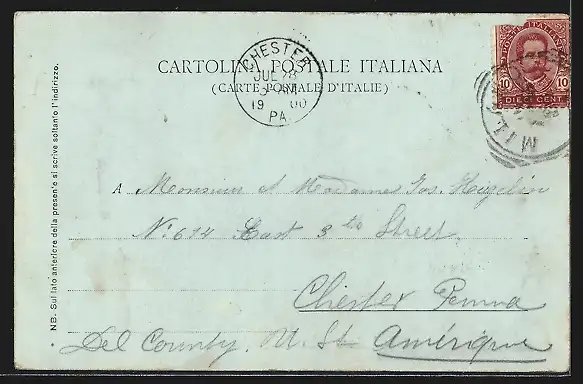 CARTOLINA POSTALE ITALIANA
(CARTE POSTALE D'ITALIE)
CHESTER
JUL 28
19 00
PA
POSTE ITALIANE
10 10
DIECI CENT.
MIL
NB. Sul lato anteriore della presente si scrive soltanto l'indirizzo.
A Monsieur et Madame Jos.
No: 612 East 3 Street
Chester Penna
Del County. U. St. Amérique